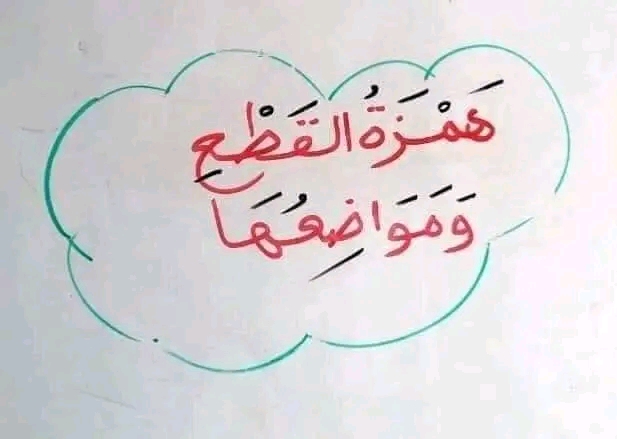 هَمْزَةُ القَطْعِ
وَمَوَاضِعُهَا